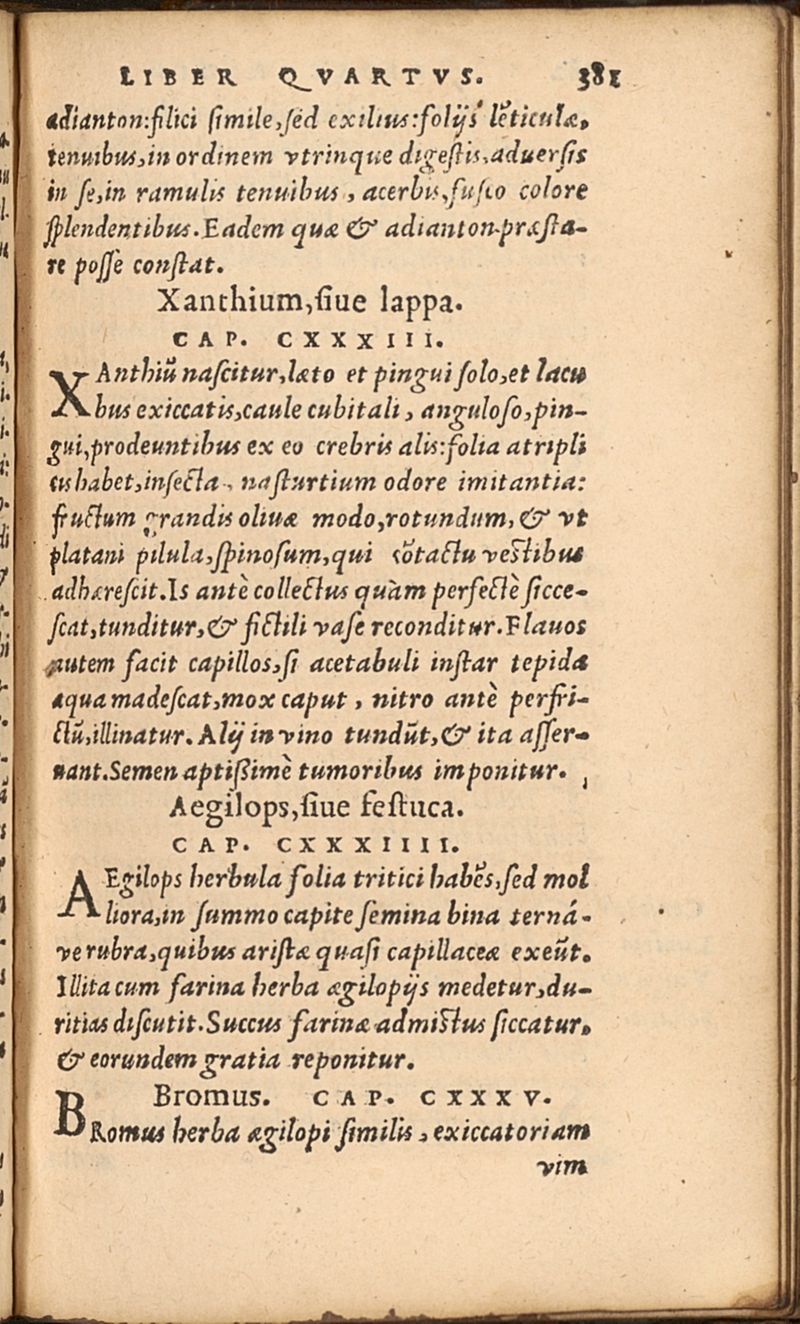 LIBER QVARTVS. 381
adianton:filici ſimile,ſed exilius:folijs lẽticulæ,
tenuibus,in ordinem vtrinque digeſtis,aduerſis
in ſe,in ramulis tenuibus, acerbis,fuſco colore
ſplendentibus.Eadem quæ & adianton præſta-
re poſſe conſtat.
Xanthium,ſiue lappa.
CAP. CXXXIII.
XAnthiũ naſcitur,læto et pingui ſolo,et lacu
bus exiccatis,caule cubitali, anguloſo,pin-
gui,prodeuntibus ex eo crebris alis:folia atripli
cis habet,inſecta, naſturtium odore imitantia:
fructum grandis oliuæ modo,rotundum,& vt
platani pilula,ſpinoſum,qui cõtactu veſtibus
adhæreſcit.Is antè collectus quàm perfectè ſicce-
ſcat,tunditur,& fictili vaſe reconditur.Flauos
autem facit capillos,ſi acetabuli inſtar tepida
aqua madeſcat,mox caput, nitro antè perfri-
ctũ,illinatur. Alij in vino tundũt,& ita aſſer-
uant.Semen aptiſsimè tumoribus imponitur.
Aegilops,ſiue feſtuca.
CAP. CXXXIIII.
AEgilops herbula folia tritici habẽs,ſed mol
liora,in ſummo capite ſemina bina terná-
ve rubra,quibus ariſtæ quaſi capillaceæ exeũt.
Illita cum farina herba ægilopijs medetur,du-
ritias diſcutit.Succus farinæ admiſtus ſiccatur,
& eorundem gratia reponitur.
Bromus. CAP. CXXXV.
BRomus herba ægilopi ſimilis, exiccatoriam
vim